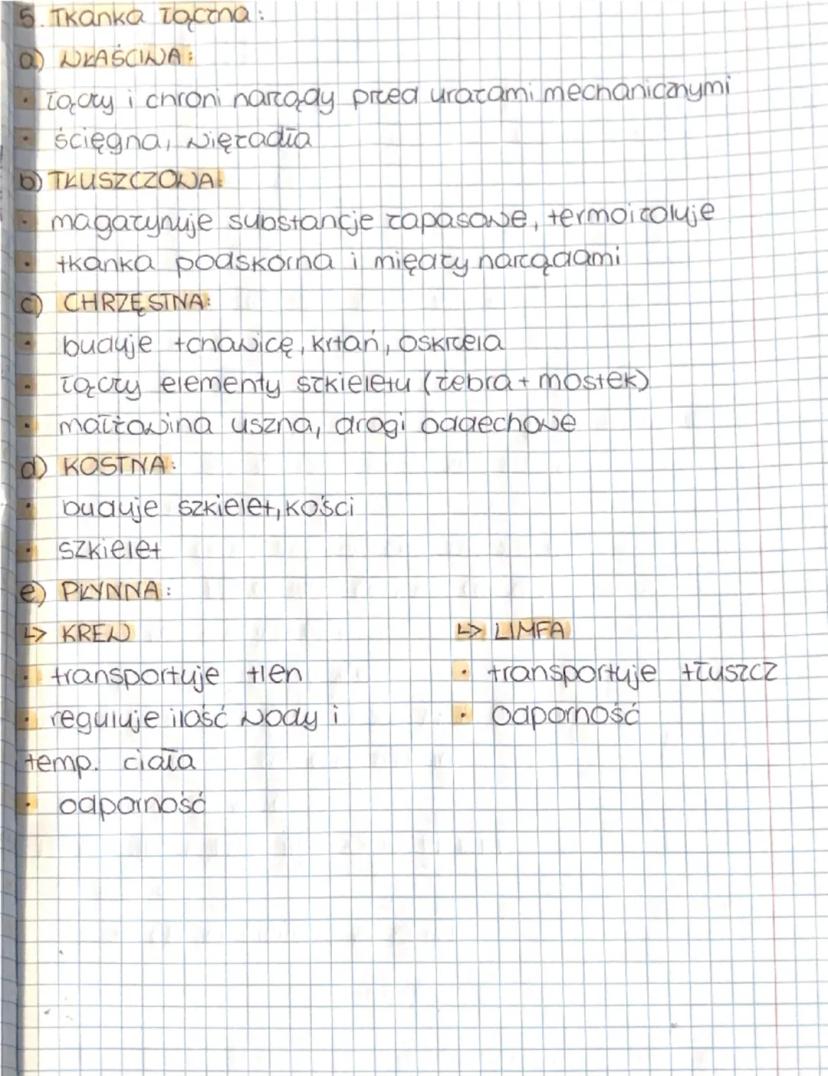 5. Tkanka łączna:
a) WŁAŚCIWA:
• łączy i chroni narządy przed urazami mechanicznymi
• ścięgna, więzadła
b) TŁUSZCZOWA:
• magazynuje substancje zapasowe, termoizoluje
• tkanka podskórna i między narządami
c) CHRZĘSTNA:
• buduje tchawicę, krtań, oskrzela
• łączy elementy szkieletu (żebra + mostek)
• małżowina uszna, drogi oddechowe
d) KOSTNA:
• buduje szkielet, kości
• szkielet
e) PŁYNNA:
↳ KREW ↳ LIMFA
• transportuje tlen • transportuje tłuszcz
• reguluje ilość wody i • odporność
temp. ciała
• odporność